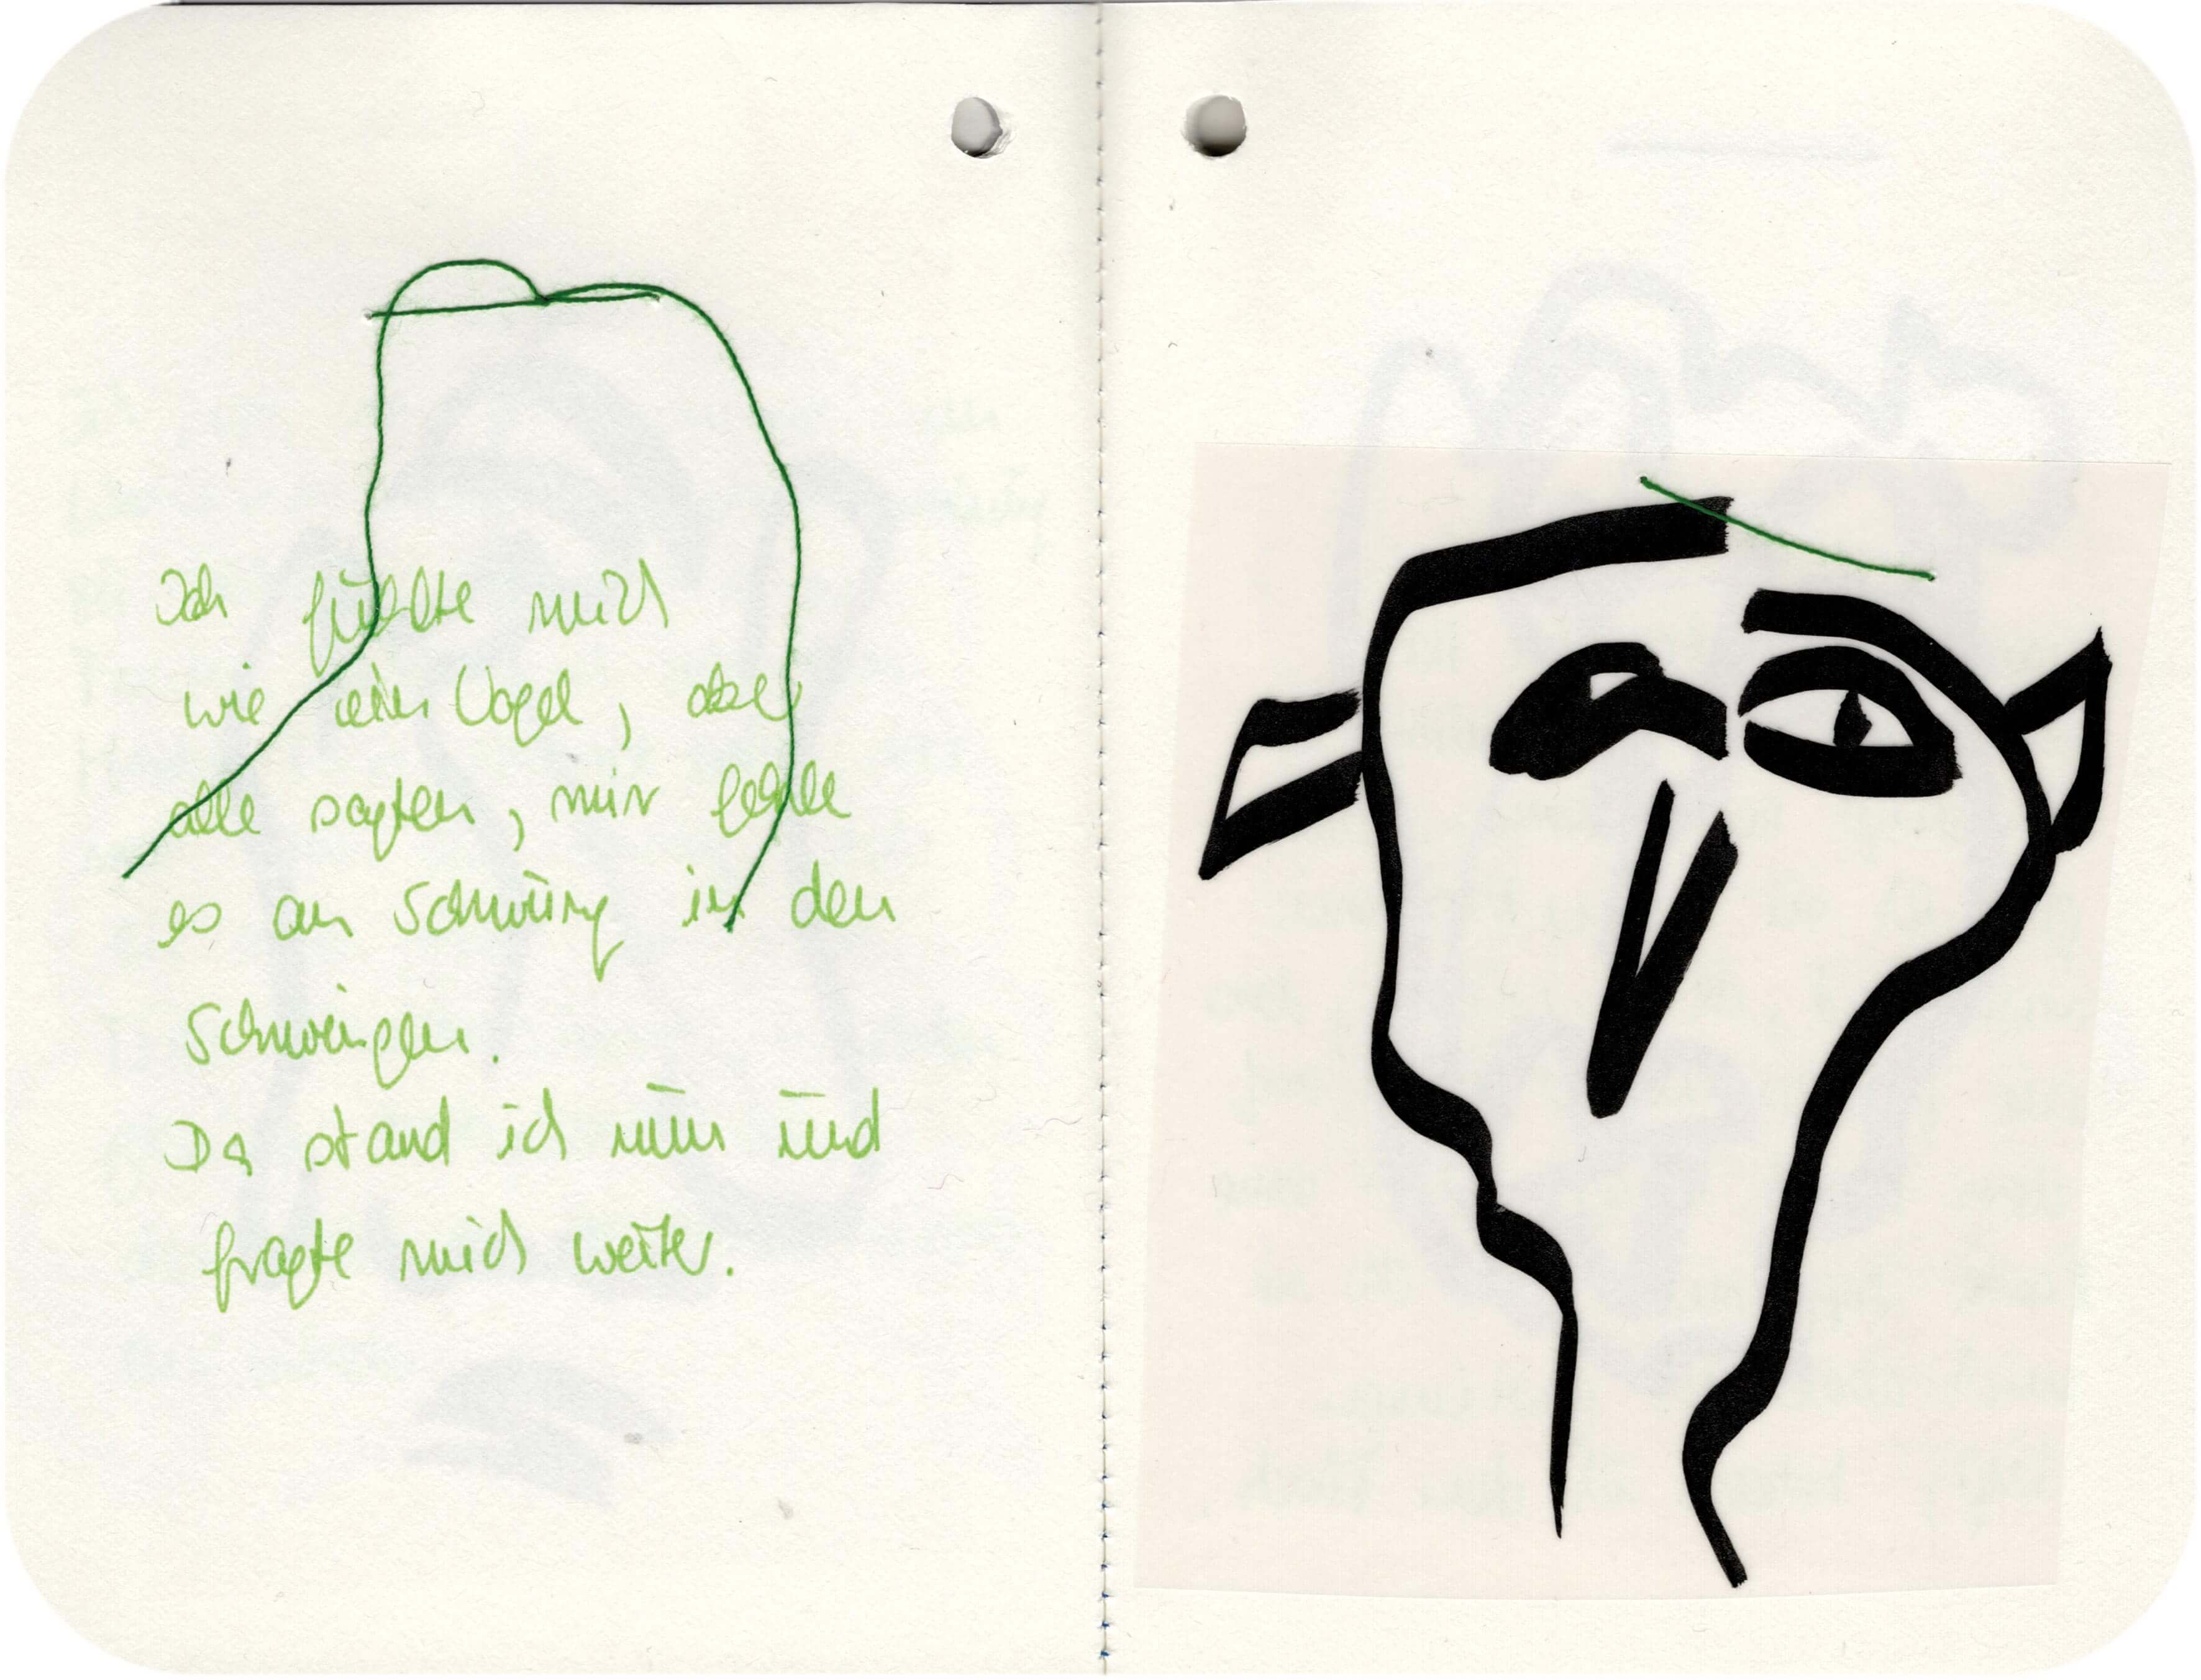 Ich fühlte mich
wie ein Vogel, aber
alle sagten, mir fehle
es an Schwung in den
Schwingen.
Da stand ich nun und
fragte mich weiter.